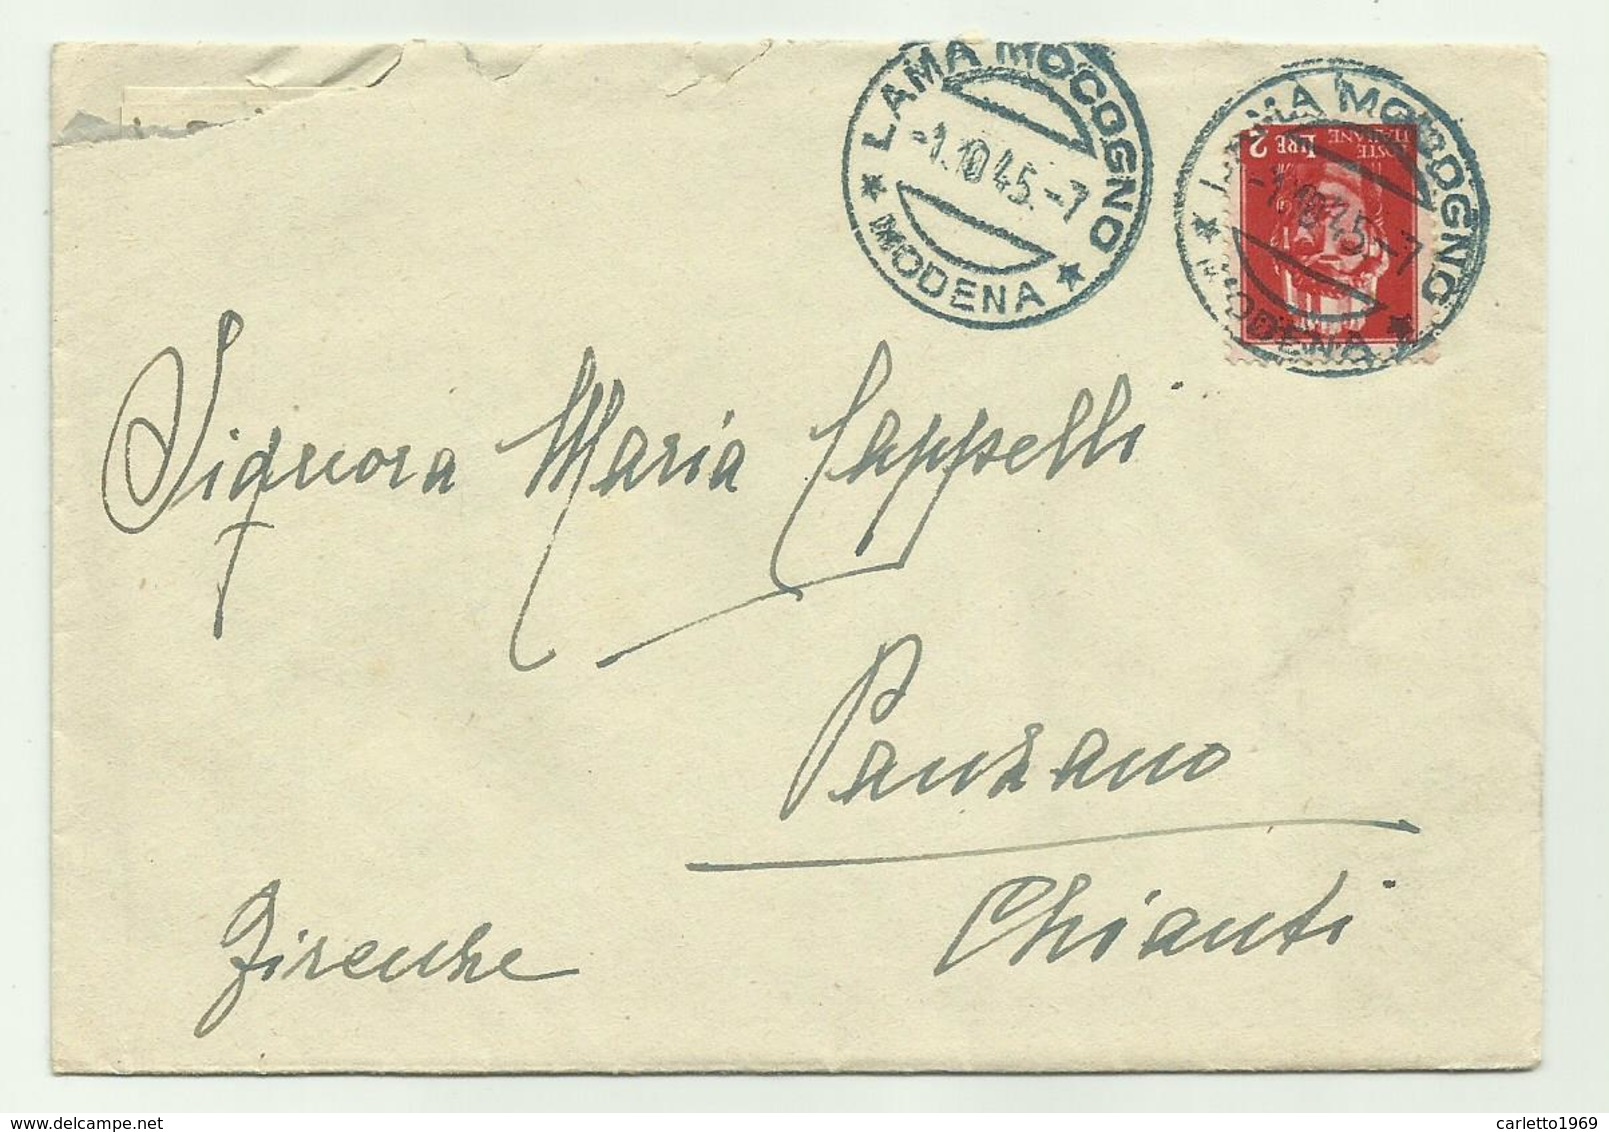 LAMA MOCOGNO
-1.10 45.-7
* MODENA *
LAMA MOCOGNO
-1.10 45.-7
* MODENA *
POSTE
ITALIANE
LIRE 2
Signora Maria Cappelli
Panzano
Chianti
Firenze
delcampe.net
carletto1969